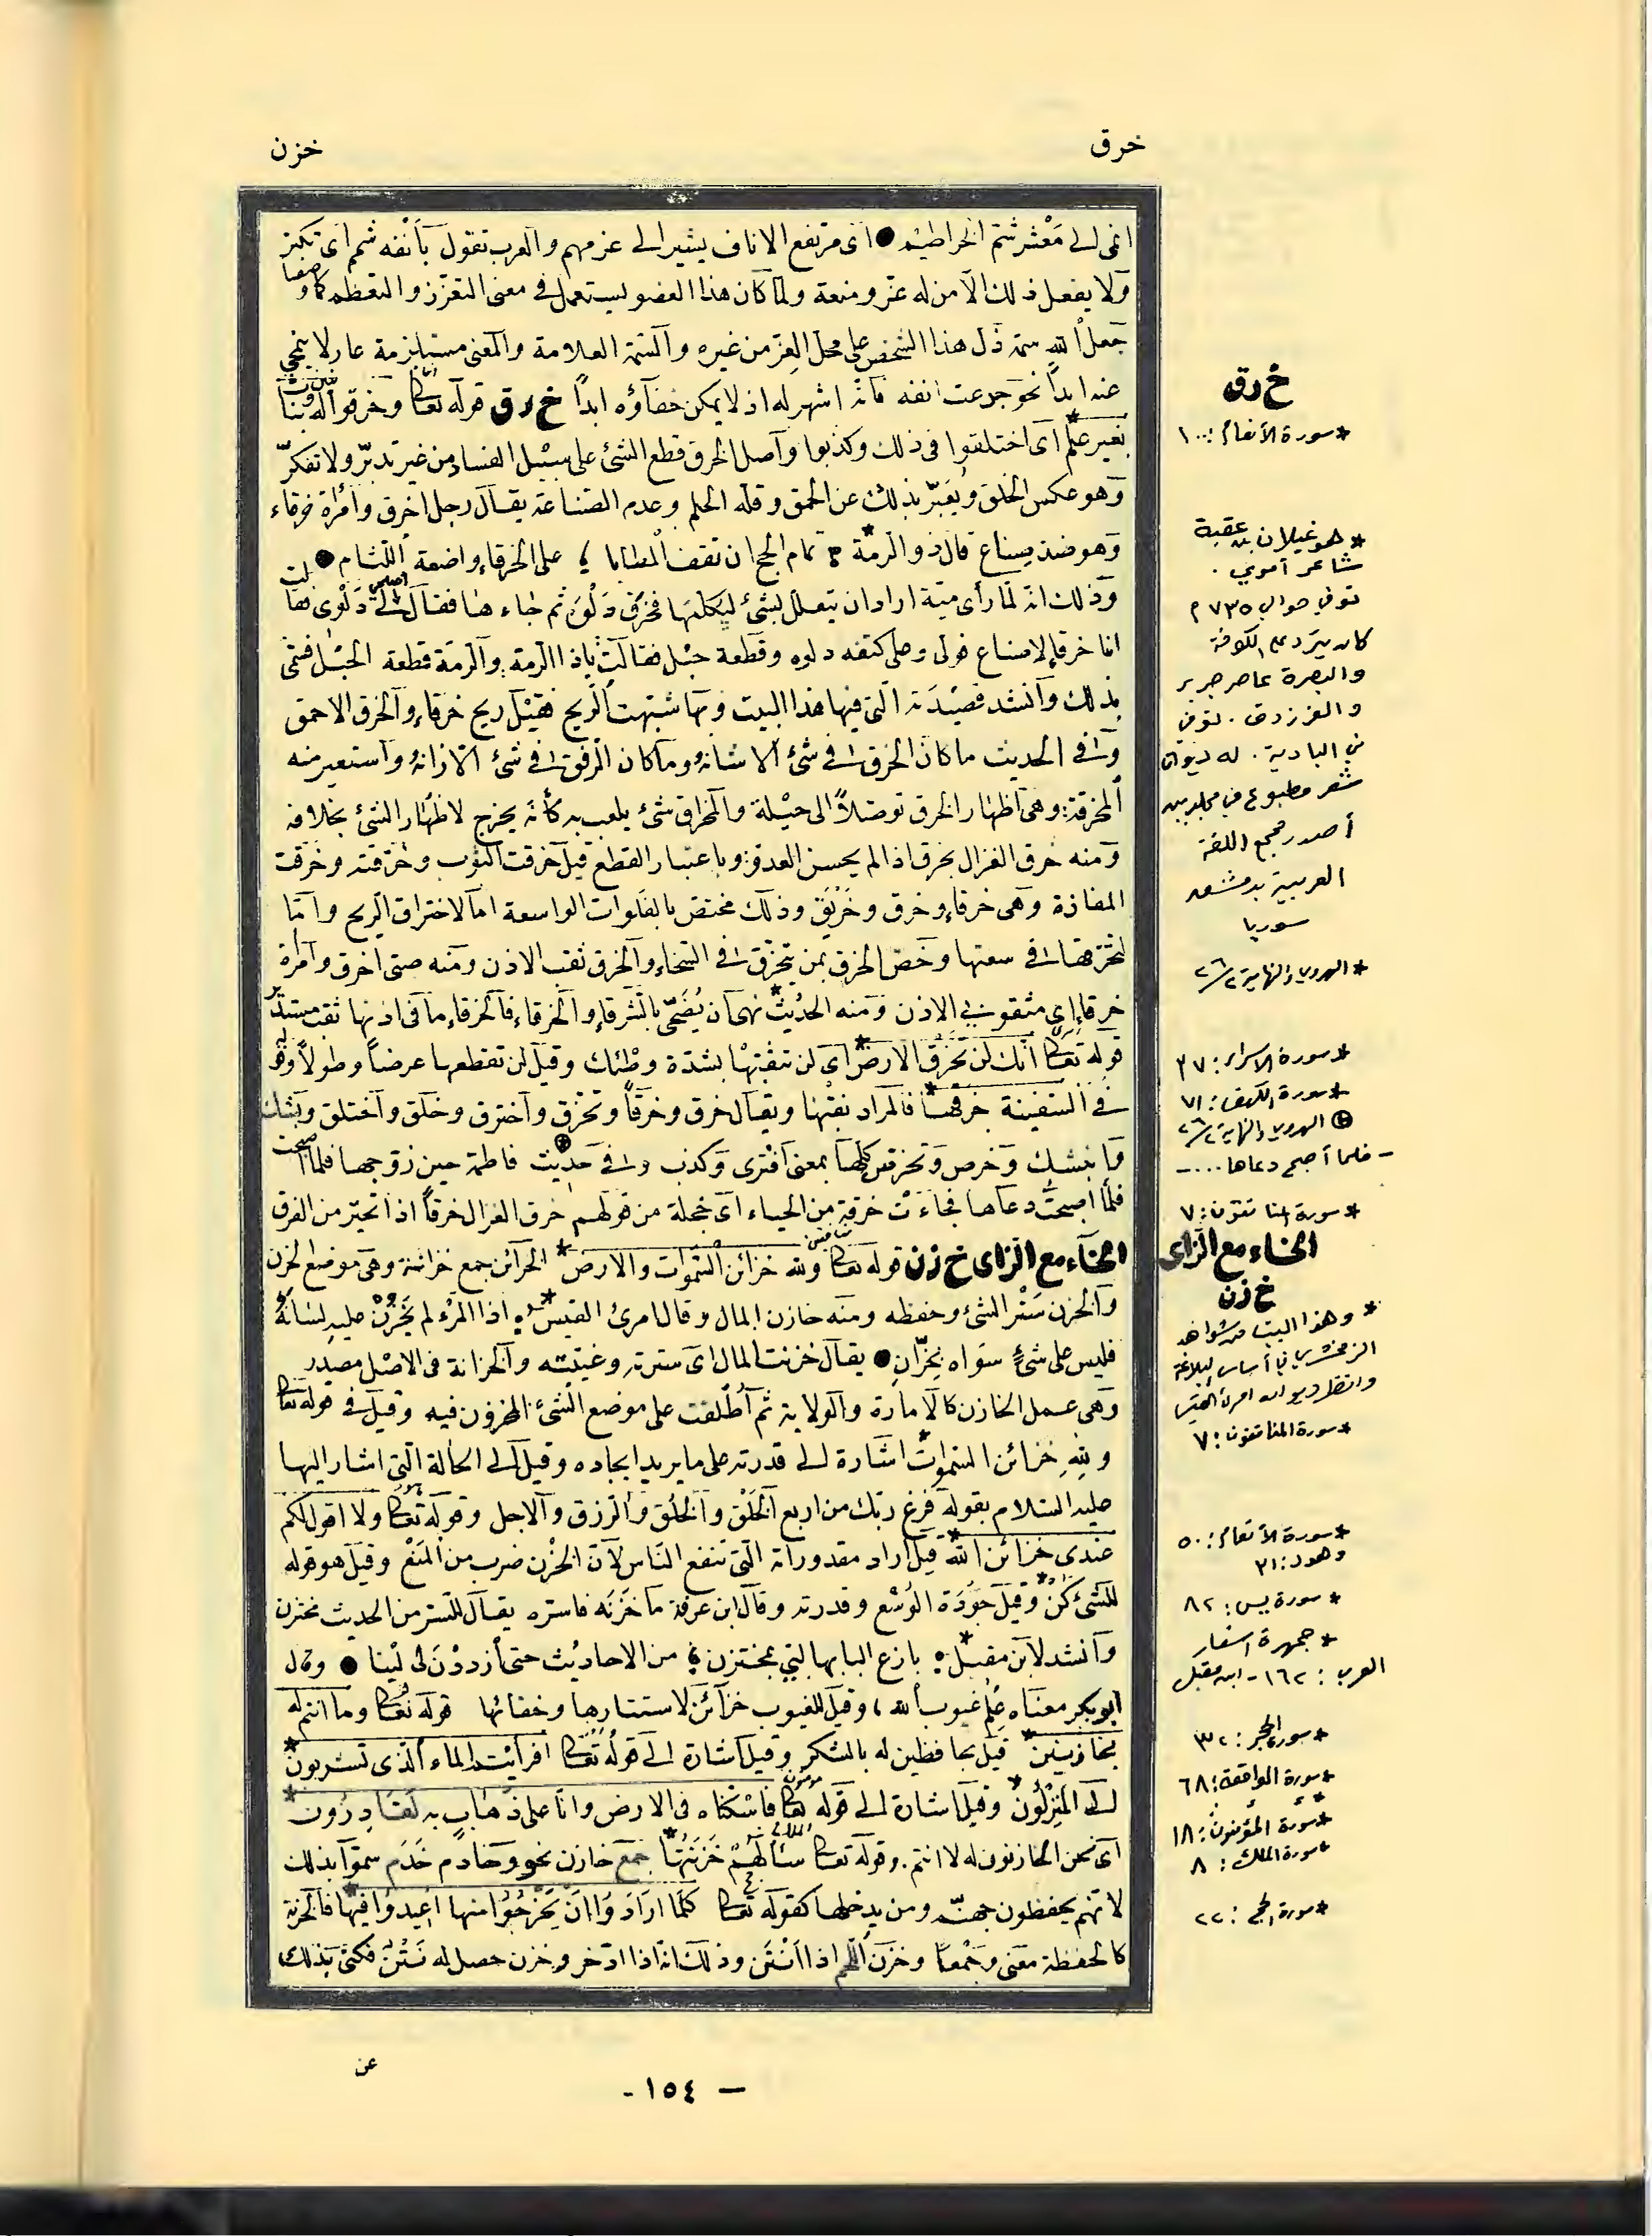 خرق
خزن
انمى الى مَعْشر شمّ الخراطيم ● اى مرتفع الاناف يشير الى عزمهم والعرب تقول بأنفه شمم اى تكبّر
ولا يفعل ذلك الا من له عزّ ومنعة ولما كان هذا العضو يستعمل فى معنى التعزّز والتعظم كما وصفنا
جعل الله سمة ذل هذا الشخص على محل العِزّ من غيره والسّمة العلامة والمعنى مستلزمة عار لا ينمحي
عنه ابداً نحو جدعت انفه فانه اشهر له اذ لا يمكن خفآؤه ابداً خ ر ق قوله تعالى وخرقوا له بنين وبنات
بغير علم* اى اختلقوا فى ذلك وكذبوا وآصل الخرق قطع الشئ على سبيل الفساد من غير تدبّر ولا تفكّر
وهو عكس الخلق ويُعَبّر بذلك عن الحمق وقلة الحلم وعدم الصناعة يقال رجل اخرق وامرأة خرقاء
وهو ضد صناع قال ذو الرمة* تمام الحج ان تقف المطايا على الخرقاء واضعة اللّثام ●
وذلك انه لما رأى ميّة اراد ان يتعلل بشئ ليكلمها فخرق دَلْوَه ثم جاء هنا فقال اصلحي لى دَلْوى فقالت
انا خرقاء لا صناع فولى وعلى كتفه دلوه وقطعة حبْل فقالت ياذا الرمة والرمة قطعة الحبْل فسمى
بذلك وآنشد قصيْدَته الّتى فيها هذا البيت وبها شبّهت الريح فقيْل ريح خرقاء والخرق الاحمق
وفى الحديث ما كان الخرق فى شئ الا شانه وما كان الرفق فى شئ الا زانهُ واستعير منه
المخرقة وهى اظهار الخرق توصّلاً الى حيْلة والمخراق شئ يلعب به كأنه يخرج لاظهار الشئ بخلافه
ومنه خرق الغزال يخرق اذا لم يحسن العدو وباعتبار القطع قيل خرقت الثوب وخرّقته وخرقت
المفازة وهى خرقاء وخرق وخَريْق وذلك مختص بالفلوات الواسعة اما لاختراق الريح واما
لتخرّقها فى سعتها وخصّ الخرق بمن يتخرّق فى السّخاء والخرق ثقب الاذن ومنه صبى اخرق وامرأة
خرقاء اى مثقوبتي الاذن ومنه الحديْث* نهى ان يُضَحّى بالشّرقاء والخرقاء فالخرقاء ما فى اذنها ثقب مستدير
قوله تعالى انك لن تخرق الارض* اى لن تثقبْها بشدّة وطْئك وقيل لن تقطعها عرضاً وطولاً وقوله
فى السّفينة خرقها* فالمراد نقبْها ويقال خرق وخرقاً وتخرّق واخترق وخلق واختلق وبشك
وابتشك وخرص وتخرص كلها بمعنى افْترى وكذب وفى حديْث⊕ فاطمة حين زوجها فلما اصبحت
فلما اصبحتْ دعاها فجاءت خرقة من الحياء اى خجلة من قولهم خرق الغزال خرقاً اذا تحيّر من الفرق
الخاء مع الزاى خ ز ن قوله تعالى ولله خزائن السّموات والارض* الخزائن جمع خزانة وهى موضع الخزن
والخزن سَتْر الشئ وحفظه ومنه خازن المال وقال امرئ القيس* اذا المرْء لم يَخْزُنْ عليه لسَانَهُ
فليس على شئٍ سواه بخزّانِ ● يقال خزنت المال اى سترته وغيّبته والخزانة فى الاصْل مصدر
وهى عمل الخازن كالامارة والولاية ثم اُطْلقت على موضع الشئ المخزون فيه وقيل فى قوله تعالى
ولله خزائن السّموات* اشارة الى قدرته على ما يريد ايجاده وقيل الى الحالة الّتى اشار اليها
عليه السّلام بقوله فرغ ربّك من اربع الخَلْق والخُلُق والرزق والاجل وقوله تعالى ولا اقول لكم
عندى خزائن الله* قيل اراد مقدوراته الّتى تنفع النّاس لانّ الخزْن ضرب من المَنْع وقيل هو قوله
للشئ كنْ* وقيل جَوْدَة الوُسْع وقدرته وقال ابن عرفة ما خَزَنَه فاستره يقال للسّتر من الحديث مختزن
وانشد لابن مقبل* بازع البابها التي بمختزن من الاحاديْث حتى ازددْنَ لى ليْنا ● وقال
ابو بكر معناه علم غيوب الله وقيل للغيوب خزآئن لاستتارها وخفائها قوله تعالى وما انتم له
بخازنين* قيل بحافظين له بالشكر وقيل اشارة الى قوله تعالى افرأيتم الماء الّذى تشربون*
الى المنْزِلُون* وقيل اشارة الى قوله تعالى فاسكنّاه فى الارض وانا على ذَهابٍ به لقادِرُون*
اى نحن الخازنون له لا انتم وقوله تعالى سألَهُمْ خَزَنَتُها* جمع خازن نحو وخادم خَدَم سموا بذلك
لانهم يحفظون جهنم ومن يدخلها كقوله تعالى كلّما ارَادُوا اَنْ يَخْرُجُوا منها اُعِيدوا فيها* فالخزنة
كالحفظة معنى وجَمْعاً وخزن اللحم اذا انْتَن وذلك انه اذا ادّخر وخزن حصل له نَتْنٌ فكنى بذلك
خ ر ق
* سورة الأنعام: ١٠٠
* هو غيلان بن عقبة
شاعر أموي.
توفي حوالي ٧٣٥ م
كان يتردد على الكوفة
والبصرة عاصر جرير
والفرزدق. توفي
في البادية. له ديوان
شعر مطبوع في مجلدين
أصدره مجمع اللغة
العربية بدمشق
سوريا
* الهروي والنهاية ٢/٢٦
* سورة الاسراء: ٣٧
* سورة الكهف: ٧١
⊕ الهروي والنهاية ٢/٢٦
- فلما أصبح دعاها ....-
* سورة المنافقون: ٧
الخاء مع الزاى
خ ز ن
* وهذا البيت من شواهد
الزمخشري في أساس البلاغة
وانظر ديوان امرئ القيس
* سورة المنافقون: ٧
* سورة الأنعام: ٥٠
وهود: ٣١
* سورة يس: ٨٢
* جمهرة اشعار
العرب: ١٦٢ - ابن مقبل
* سورة الحجر: ٢٢
* سورة الواقعة: ٦٨
* سورة المؤمنون: ١٨
* سورة الملك: ٨
* سورة الحج: ٢٢
عن
- ١٥٤ -